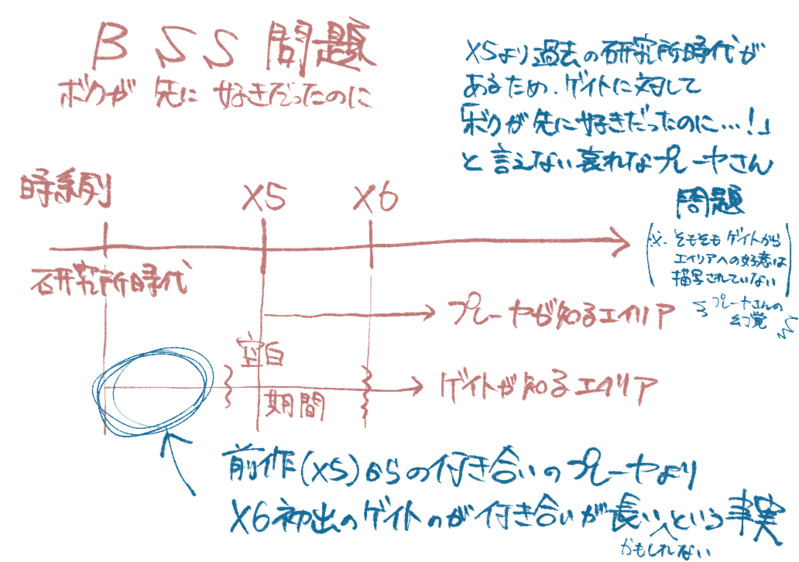 BSS問題
ボクが 先に 好きだったのに
X5より過去の研究所時代が
あるため、ゲイトに対して
「ボクが先に好きだったのに…!」
と言えない哀れなプレーヤさん
問題
(※. そもそもゲイトから
エイリアへの好意は
描写されていない)
プレーヤさんの
幻覚
時系列
X5
X6
研究所時代
プレーヤが知るエイリア
空白
期間
ゲイトが知るエイリア
前作(X5)からの付き合いのプレーヤより
X6初出のゲイトのが付き合いが長いという事実
かもしれない